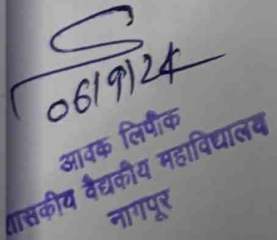 06/9/24
आवक लिपीक
शासकीय वैद्यकीय महाविद्यालय
नागपूर